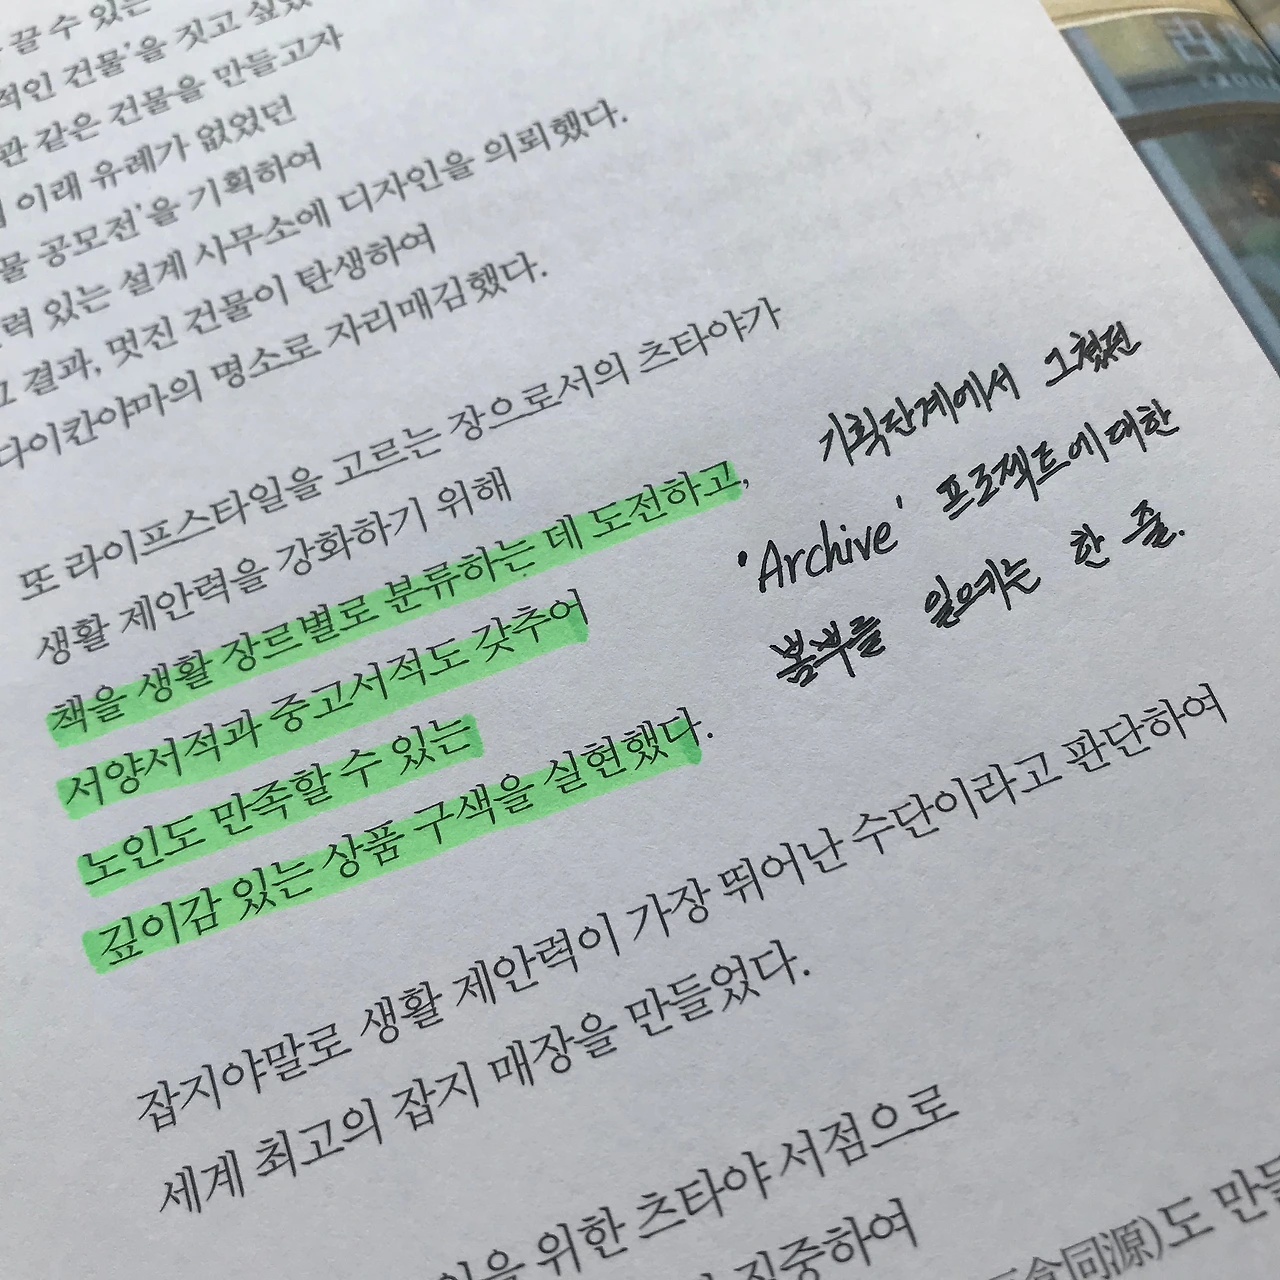 끌 수 있는
적인 건물'을 짓고 싶었
관 같은 건물을 만들고자
이래 유례가 없었던
물 공모전'을 기획하여
력 있는 설계 사무소에 디자인을 의뢰했다.
그 결과, 멋진 건물이 탄생하여
다이칸야마의 명소로 자리매김했다.
또 라이프스타일을 고르는 장으로서의 츠타야가
생활 제안력을 강화하기 위해
책을 생활 장르별로 분류하는 데 도전하고,
서양서적과 중고서적도 갖추어
노인도 만족할 수 있는
깊이감 있는 상품 구색을 실현했다.
기획단계에서 그쳤던
'Archive' 프로젝트에 대한
뽐뿌를 일으키는 한 줄.
잡지야말로 생활 제안력이 가장 뛰어난 수단이라고 판단하여
세계 최고의 잡지 매장을 만들었다.
을 위한 츠타야 서점으로
집중하여
同源)도 만들